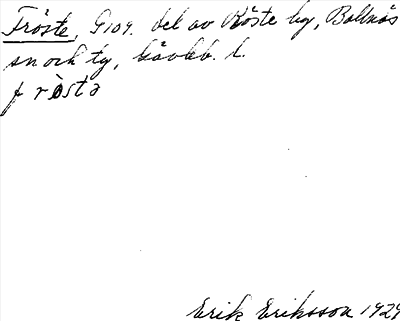 Fröste, G109. del av Röste by, Bollnäs
sn och tg, Gävleb. l.
frösta
Erik Eriksson 1929